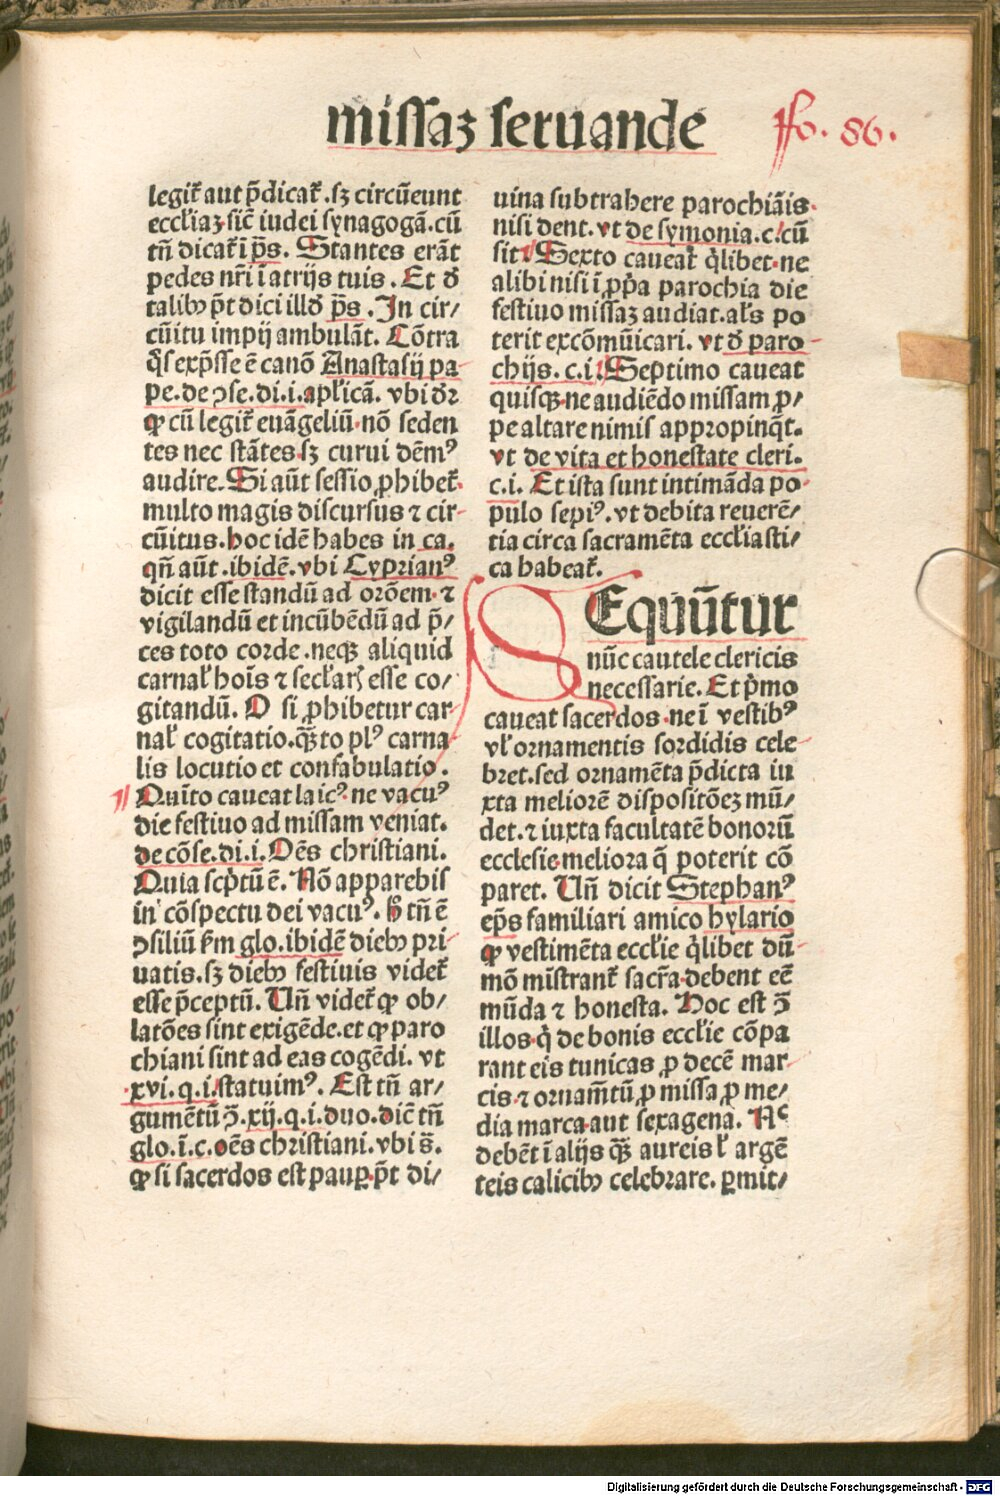 missaꝫ seruande
fo. 86.
legit̄ aut p̄dicat̄ .sꝫ circūeunt
eccl̄iaꝫ.sic̄ iudei synagogā.cū
tn̄ dicat̄ ī p̄s. Stantes erāt
pedes nr̄i ī atrijs tuis . Et đ
talibꝰ p̄t dici illđ p̄s . In cir/
cūitu impij ambulāt. Cōtra
q̄s exp̄sse ē canō Anastasij pa
pe.de ↄse.di.i.apl̄icā. vbi đr
ꝙ cū legit̄ euāgeliū.nō seden
tes nec stātes.sꝫ curui dēmꝰ
audire. Si aūt sessio ꝓhibet̄.
multo magis discursus ⁊ cir-
cūitus.hoc idē habes in ca.
qn̄ aūt .ibidē.vbi Cyprianꝰ
dicit esse standū ad orōem.⁊
vigilandū et incūbēdū ad p̄/
ces toto corde .neqꝫ aliquid
carnal̄ hois ⁊ secl̄arꝭ esse co/
gitandū. Q si ꝓhibetur car-
nal̄ cogitatio.qꝫ̄to plꝰ carna
lis locutio et confabulatio .
Quīto caueat laicꝰ.ne vacuꝰ
die festiuo ad missam veniat.
de cōse.di.i.Oēs christiani.
Quia scp̄tū ē. Nō apparebis
in cōspectu dei vacuꝰ. h̄ tn̄ ē
ↄsiliū s̄m glo.ibidē diebꝰ pri
uatis.sꝫ diebꝰ festiuis videt̄
esse p̄ceptū. Un̄ videt̄ ꝙ ob/
latōes sint exigēde.et ꝙ paro
chiani sint ad eas cogēdi. vt
xvi.q.i.statuimꝰ. Est tn̄ ar/
gumētū ↄ̄.xij.q.i.duo.dic̄ tn̄
glo.ī.c.oēs christiani.vbi s̄.
ꝙ si sacerdos est pauꝑ.p̄t di/
uina subtrahere parochiāis.
nisi dent.vt de symonia.c.cū
sit Sexto caueat q̄libet.ne
alibi nisi ī ꝓp̄a parochia die
festiuo missaꝫ audiat.al̄s po
terit excōmūicari. vt đ paro
chijs. c.i. Septimo caueat
quisqꝫ.ne audiēdo missam ꝓ/
pe altare nimis appropinq̄t.
vt de vita et honestate cleri.
c.i. Et ista sunt intimāda po
pulo sepiꝰ.vt debita reuerē/
tia circa sacramēta eccl̄iasti/
ca habeat̄.
SEquūtur
nūc cautele clericis
necessarie. Et p̄mo
caueat sacerdos.ne ī vestibꝰ
vl̄ ornamentis sordidis cele
bret.sed ornamēta p̄dicta iu
xta meliorē dispositōeꝫ mū/
det.⁊ iuxta facultatē bonorū
ecclesie.meliora q̄ poterit cō
paret. Un̄ dicit Stephanꝰ
ep̄s familiari amico hylario
ꝙ vestimēta eccl̄ie q̄libet dū
mō mīstrant̄ sacr̄a.debent eē
mūda ⁊ honesta. Hoc est ↄ̄
illos.q̄ de bonis eccl̄ie cōpa
rant eis tunicas ꝓ decē mar
cis.⁊ ornam̄tū ꝓ missa ꝓ me/
dia marca aut sexagena. Nͨ
debēt ī alijs qꝫ̄ aureis l̄ argē
teis calicibꝰ celebrare. ꝑmit/
Digitalisierung gefördert durch die Deutsche Forschungsgemeinschaft - DFG